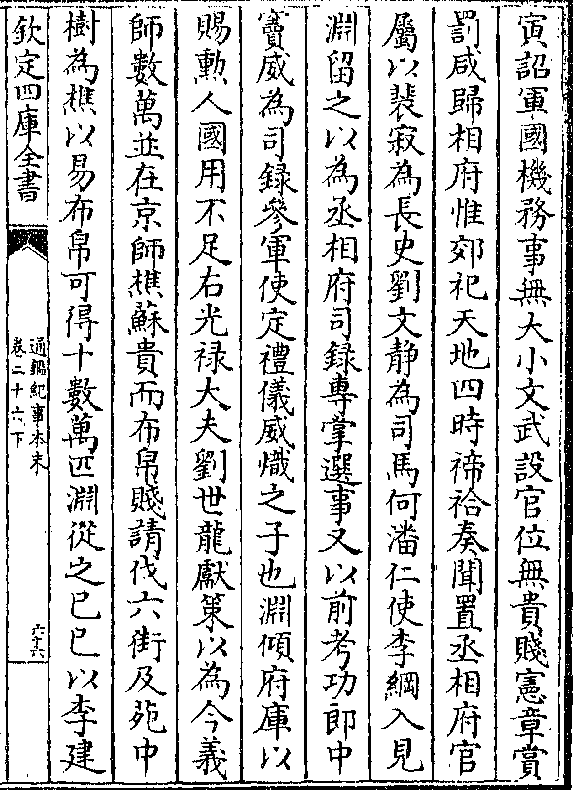 寅詔軍國機務事無大小文武設官位無貴賤憲章賞
罰咸歸相府惟郊祀天地四時禘祫奏聞置丞相府官
屬以裴寂為長史劉文靜為司馬何潘仁使李綱入見
淵留之以為丞相府司錄專掌選事又以前考功郎中
竇威為司錄參軍使定禮儀威熾之子也淵傾府庫以
賜勲人國用不足右光祿大夫劉世龍獻策以為今義
師數萬並在京師樵蘇貴而布帛賤請伐六街及苑中
樹為樵以易布帛可得十數萬匹淵從之己巳以李建
欽定四庫全書
通鑑紀事本末
卷二十六下